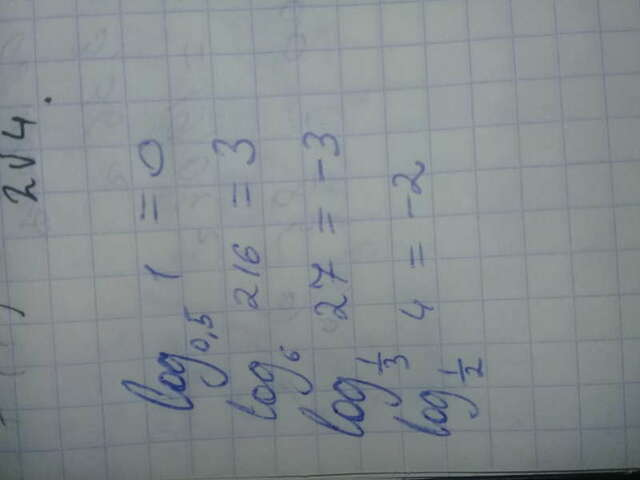 2√4.
log₀,₅ 1 = 0
log₆ 216 = 3
log 1/3 27 = -3
log 1/2 4 = -2